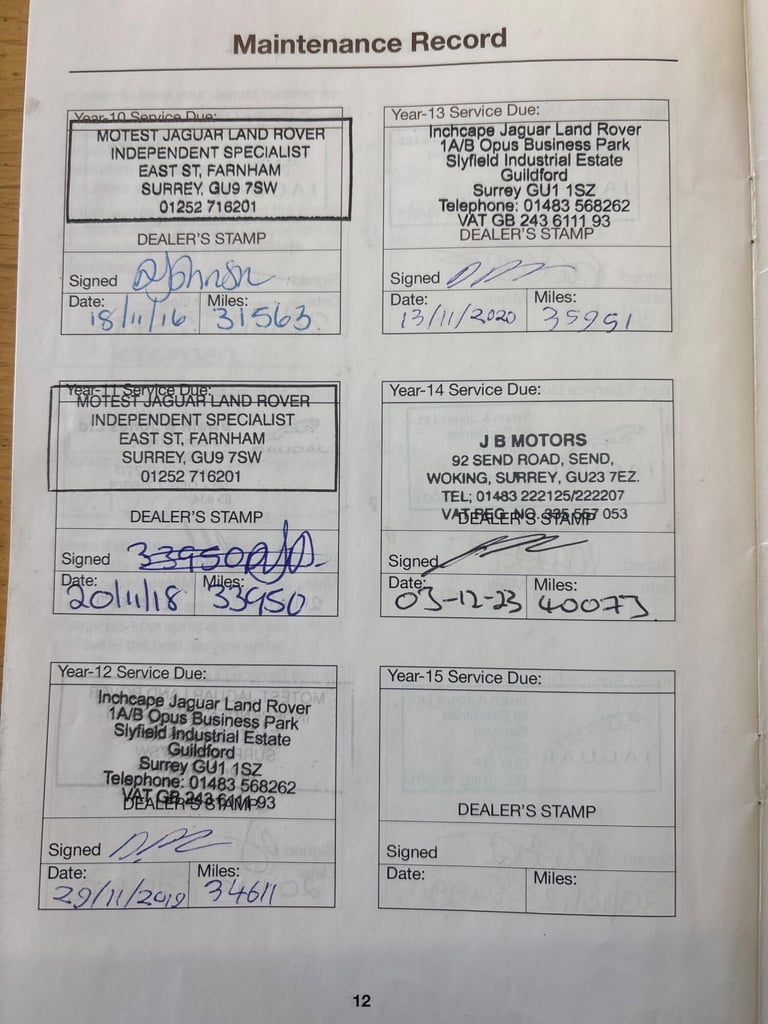 Maintenance Record
Year-10 Service Due:
MOTEST JAGUAR LAND ROVER
INDEPENDENT SPECIALIST
EAST ST, FARNHAM
SURREY, GU9 7SW
01252 716201
DEALER'S STAMP
Signed
Date: Miles:
18/11/16 31563
Year-11 Service Due:
MOTEST JAGUAR LAND ROVER
INDEPENDENT SPECIALIST
EAST ST, FARNHAM
SURREY, GU9 7SW
01252 716201
DEALER'S STAMP
Signed 33950
Date: Miles:
20/11/18 33950
Year-12 Service Due:
Inchcape Jaguar Land Rover
1A/B Opus Business Park
Slyfield Industrial Estate
Guildford
Surrey GU1 1SZ
Telephone: 01483 568262
VAT GB 243 6111 93
DEALER'S STAMP
Signed
Date: Miles:
29/11/2019 34611
Year-13 Service Due:
Inchcape Jaguar Land Rover
1A/B Opus Business Park
Slyfield Industrial Estate
Guildford
Surrey GU1 1SZ
Telephone: 01483 568262
VAT GB 243 6111 93
DEALER'S STAMP
Signed
Date: Miles:
13/11/2020 35951
Year-14 Service Due:
J B MOTORS
92 SEND ROAD, SEND,
WOKING, SURREY, GU23 7EZ.
TEL; 01483 222125/222207
VAT REG. NO. 335 557 053
DEALER'S STAMP
Signed
Date: Miles:
03-12-23 40073
Year-15 Service Due:
DEALER'S STAMP
Signed
Date: Miles:
12